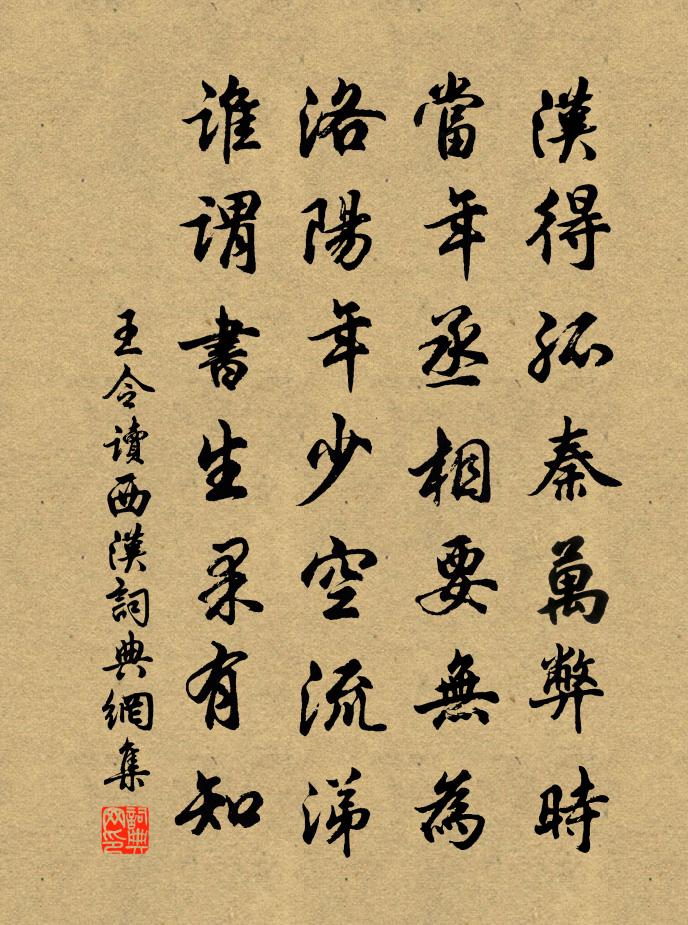 漢得孤秦萬弊時
當年丞相要無為
洛陽年少空流涕
誰謂書生果有知
王令讀西漢詞典網集
詞典網印